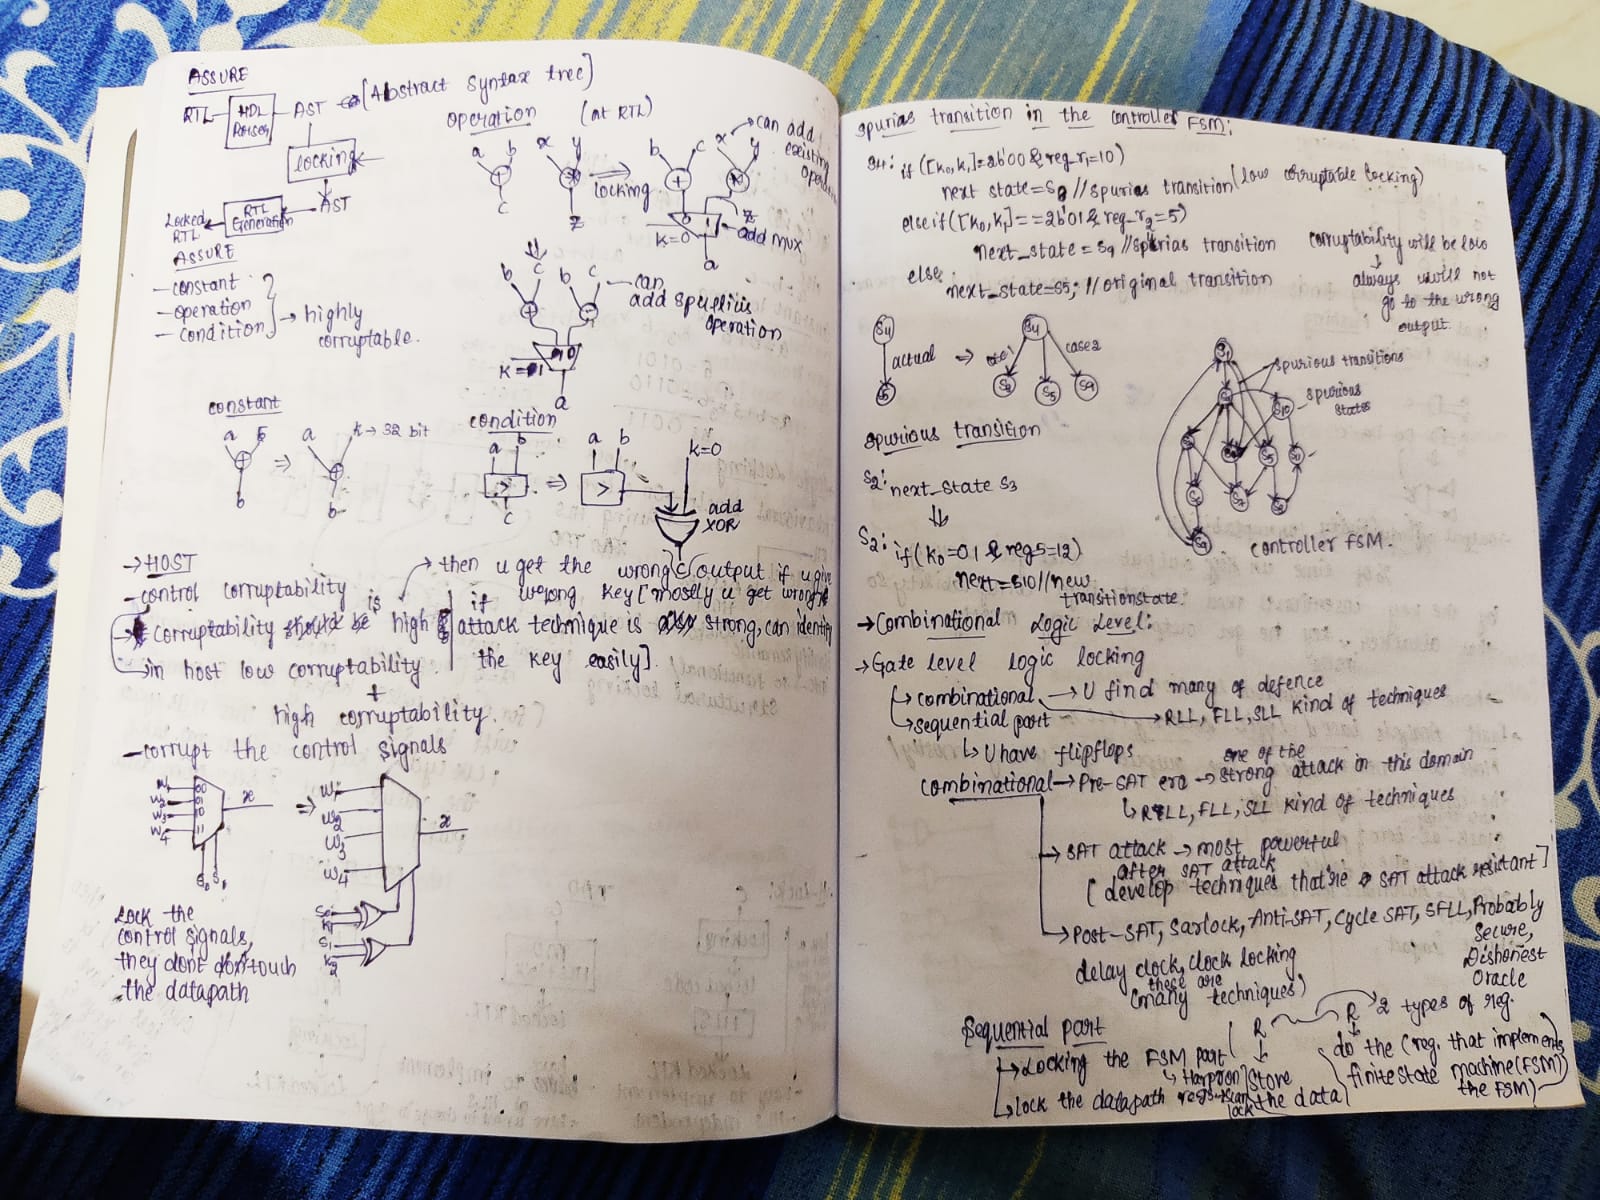 ASSURE
RTL HDL Parser AST [Abstract Syntax tree]
locking
AST
RTL Generation
Locked RTL
ASSURE
- constant
- operation
- condition
highly corruptable.
operation (at RTL)
a b x y
c z
locking
b c x y
can add existing
z
add mux
K=0
a
b c b c
can add
operation
K=1
a
constant
a 5 a k → 32 bit
b b
condition
a b a b K=0
> >
c
add XOR
c
→ HOST
- control corruptability
→ corruptability is high
in host low corruptability
+
high corruptability.
then u get the wrong output if u give
wrong key [mostly u get wrong
if attack technique is strong, can identify
the key easily].
- corrupt the control signals
W1
W2
W3
W4
00
01
10
11
x
S0 S1
W1
W2
W3
W4
x
S0
K1
S1
K2
Lock the
control signals,
they dont touch
the datapath
spurias transition in the controller FSM:
S4: if ([k0,k1]=2b'00 & reg_r1=10)
next state=S2 // spurias transition (low corruptable locking)
else if ([k0,k1]==2b'01 & reg_r2=5)
next_state = S9 // spurias transition
else
next_state=S5; // original transition
corruptability will be low
always u will not
go to the wrong
output.
S4 actual S5
S4 case2
S2 S5 S9
spurious transitions
spurious states
S10
controller FSM.
spurious transition
S2: next_state S3
S2: if (K0=01 & reg5=12)
next=S10 // new
transition state.
→ Combinational Logic Level:
→ Gate level logic locking
combinational → U find many of defence
sequential part → RLL, FLL, SLL kind of techniques
U have flipflops
combinational → Pre-SAT era → one of the strong attack in this domain
RLL, FLL, SLL kind of techniques
→ SAT attack → most powerful
after SAT attack
[develop techniques that're SAT attack resistant]
→ Post-SAT, Sarlock, Anti-SAT, Cycle SAT, SFLL, Probably
Secure,
Dishonest
Oracle
delay clock, clock locking
these are
(many techniques)
Sequential part
→ Locking the FSM part
Harpoon
→ lock the datapath regs
scan lock
R R 2 types of reg.
Store
the data
do the (reg. that implements
finite state machine (FSM)
the FSM)